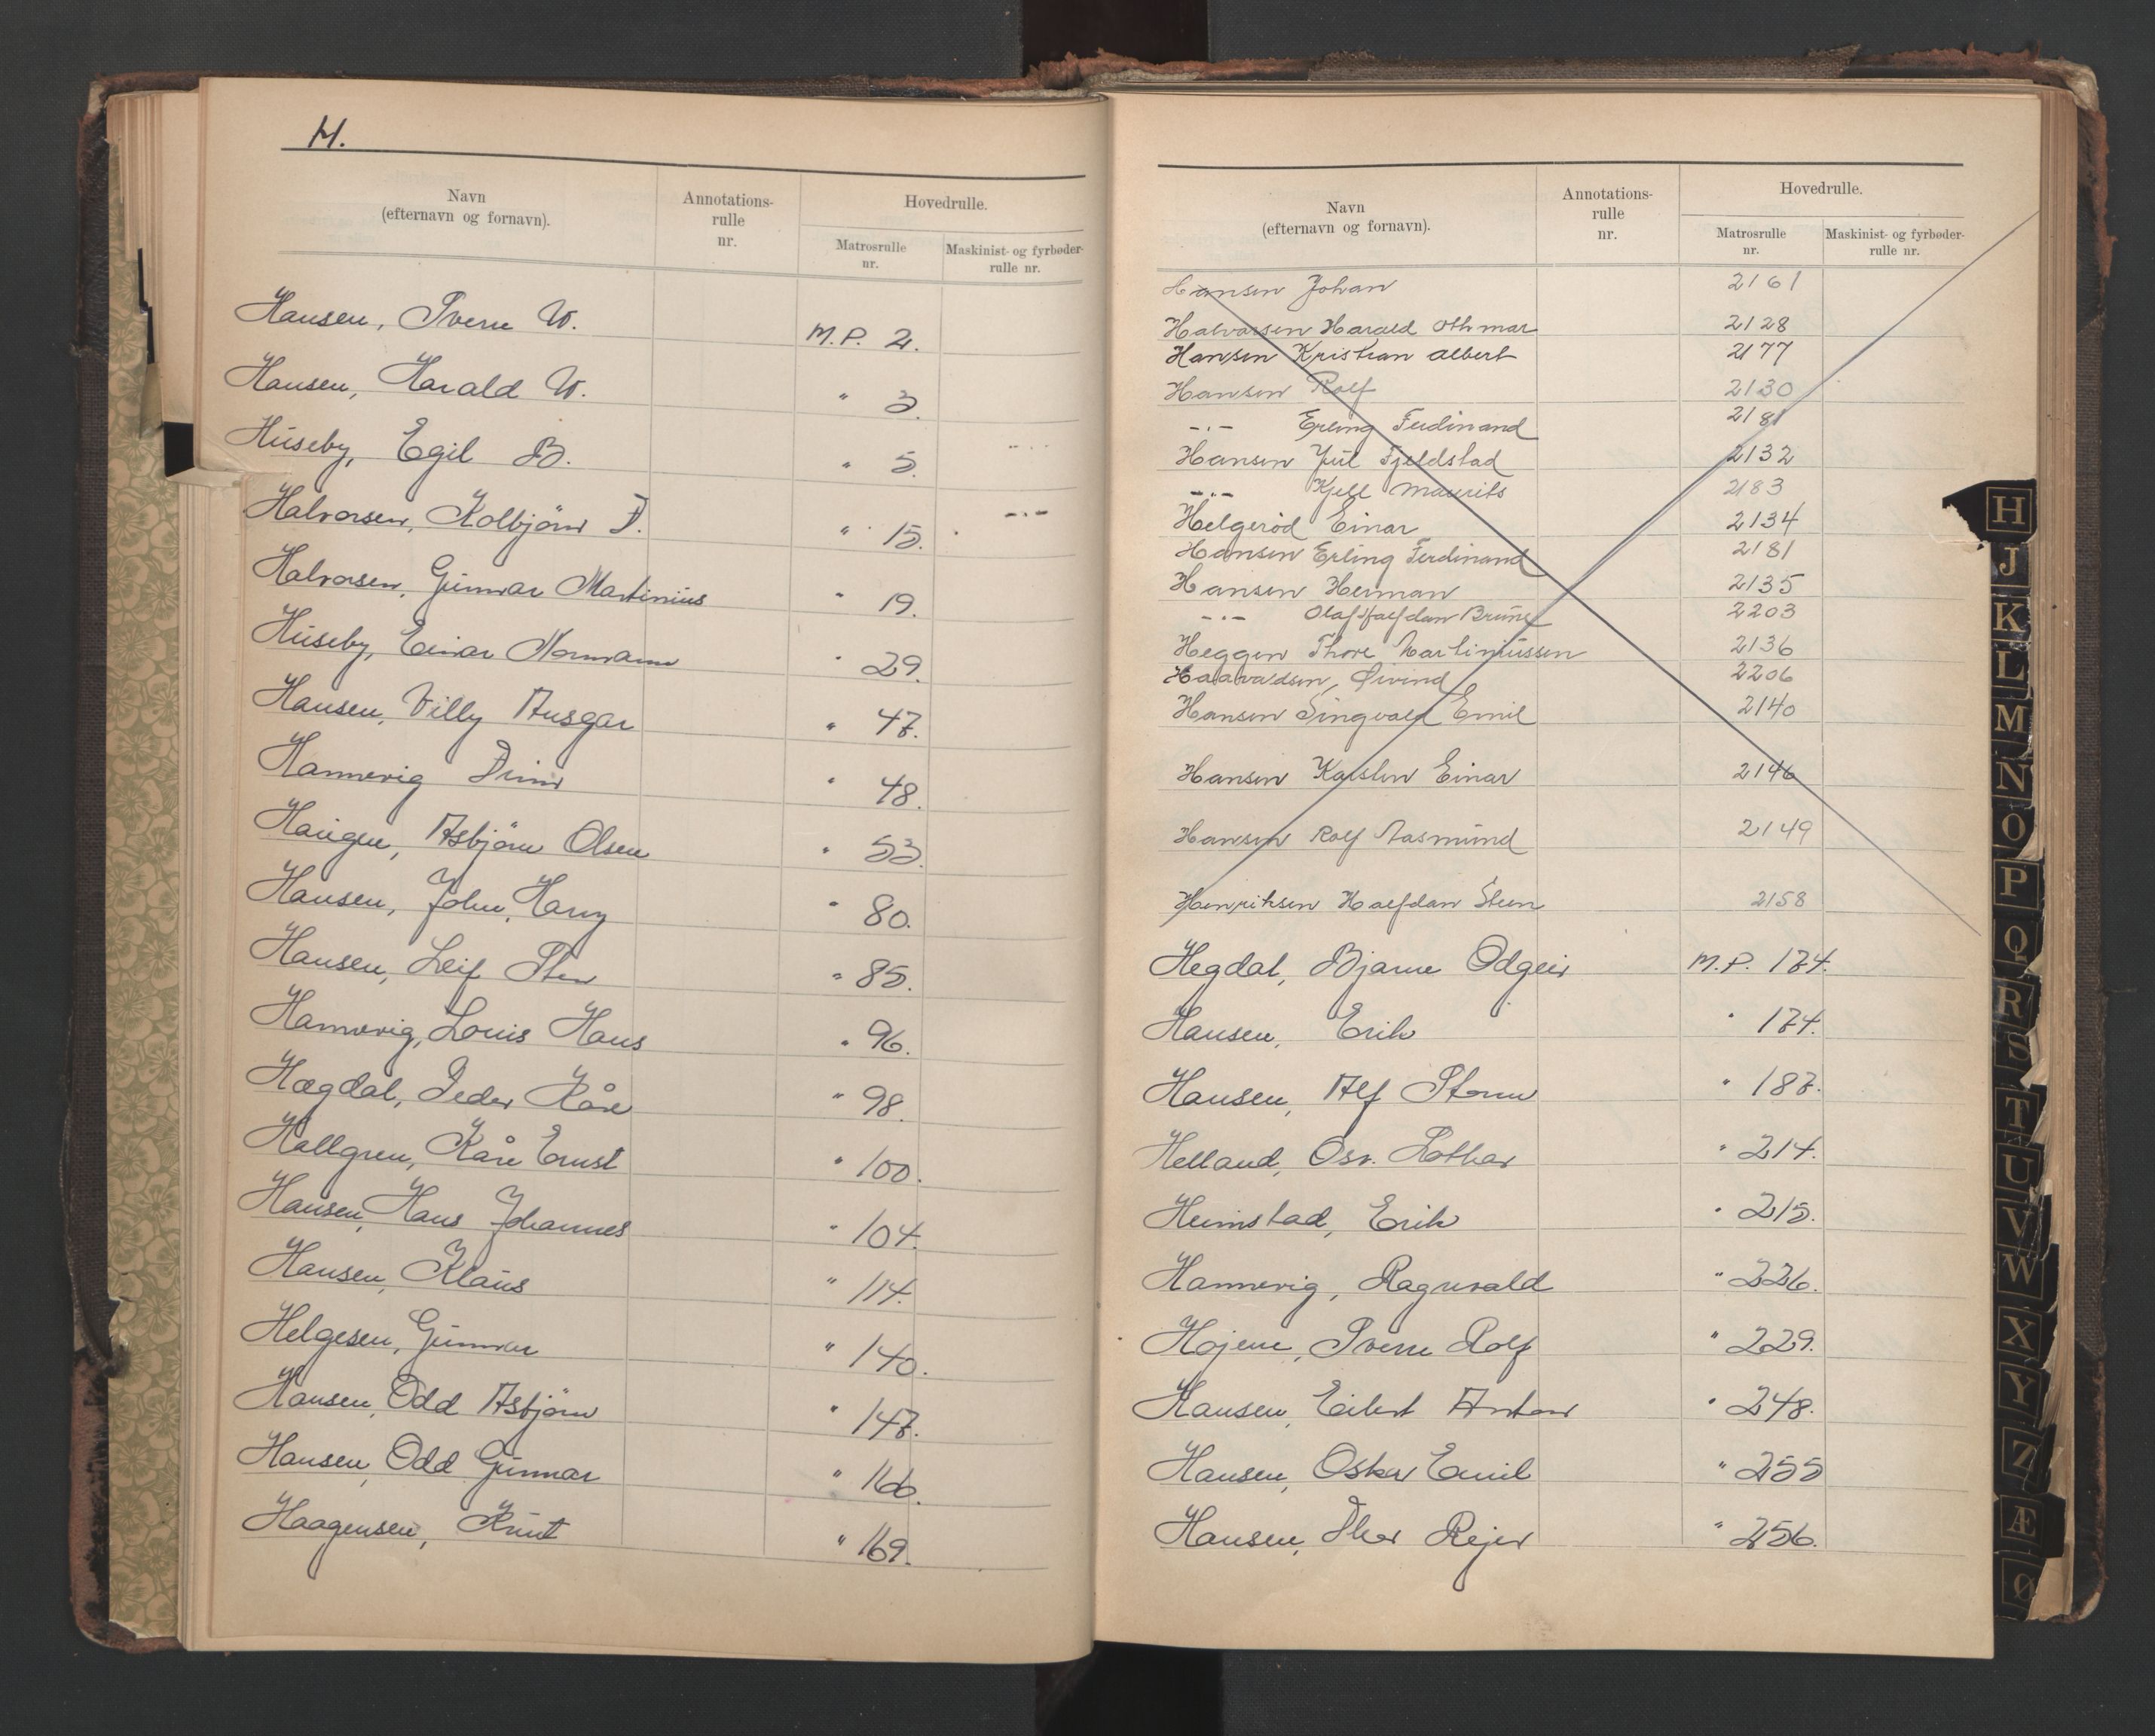 H.
Navn
(efternavn og fornavn).
Annotations-
rulle
nr.
Hovedrulle.
Matrosrulle
nr.
Maskinist- og fyrbøder-
rulle nr.
Hansen, Sverre W. M.P. 2.
Hansen, Harald W. " 3.
Huseby, Egil B. " 5.
Halvorsen, Kolbjörn F. " 15.
Halvorsen, Gunnar Martinius " 19.
Huseby, Einar Normann " 29.
Hansen, Villy Ansgar " 47.
Hannevig Finn " 48.
Haugen, Asbjörn Olsen " 53.
Hansen, John Harry " 80.
Hansen, Leif Sten " 85.
Hannevig, Louis Hans " 96.
Hægdal, Peder Kåre " 98.
Hallgren, Kåre Ernst " 100.
Hansen, Hans Johannes " 104.
Hansen, Klaus " 114.
Helgesen, Gunnar " 140.
Hansen, Odd Asbjörn " 147.
Hansen, Odd Gunnar " 166.
Haagensen, Knut " 169.
Navn
(efternavn og fornavn).
Annotations-
rulle
nr.
Hovedrulle.
Matrosrulle
nr.
Maskinist- og fyrbøder-
rulle nr.
Hansen Johan 2161
Halvorsen Harald Othmar 2128
Hansen Kristian Albert 2177
Hansen Rolf 2130
-"- Erling Ferdinand 2181
Hansen Juul Fjeldstad 2132
-"- Kjell Maurits 2183
Helgerød Einar 2134
Hansen Erling Ferdinand 2181
Hansen Herman 2135
-"- Olaf Halfdan Brune 2203
Heggen Thore Martiniussen 2136
Haavadsen, Øivind 2206
Hansen Singvald Emil 2140
Hansen Karsten Einar 2146
Hansen Rolf Aasmund 2149
Henriksen Halfdan Steen 2158
Hegdal, Bjarne Odgeir M.P. 174.
Hansen, Erik " 174.
Hansen, Alf Storm " 187.
Helland, Osv. Lothar " 214.
Heimstad, Erik " 215.
Hannevig, Ragnvald " 226.
Højem, Sverre Rolf " 229.
Hansen, Eilert Anton " 248.
Hansen, Oskar Emil " 255
Hansen, Thor Rejer " 256.
H
J
K
L
M
N
O
P
Q
R
S
T
U
V
W
X
Y
Z
Æ
Ø